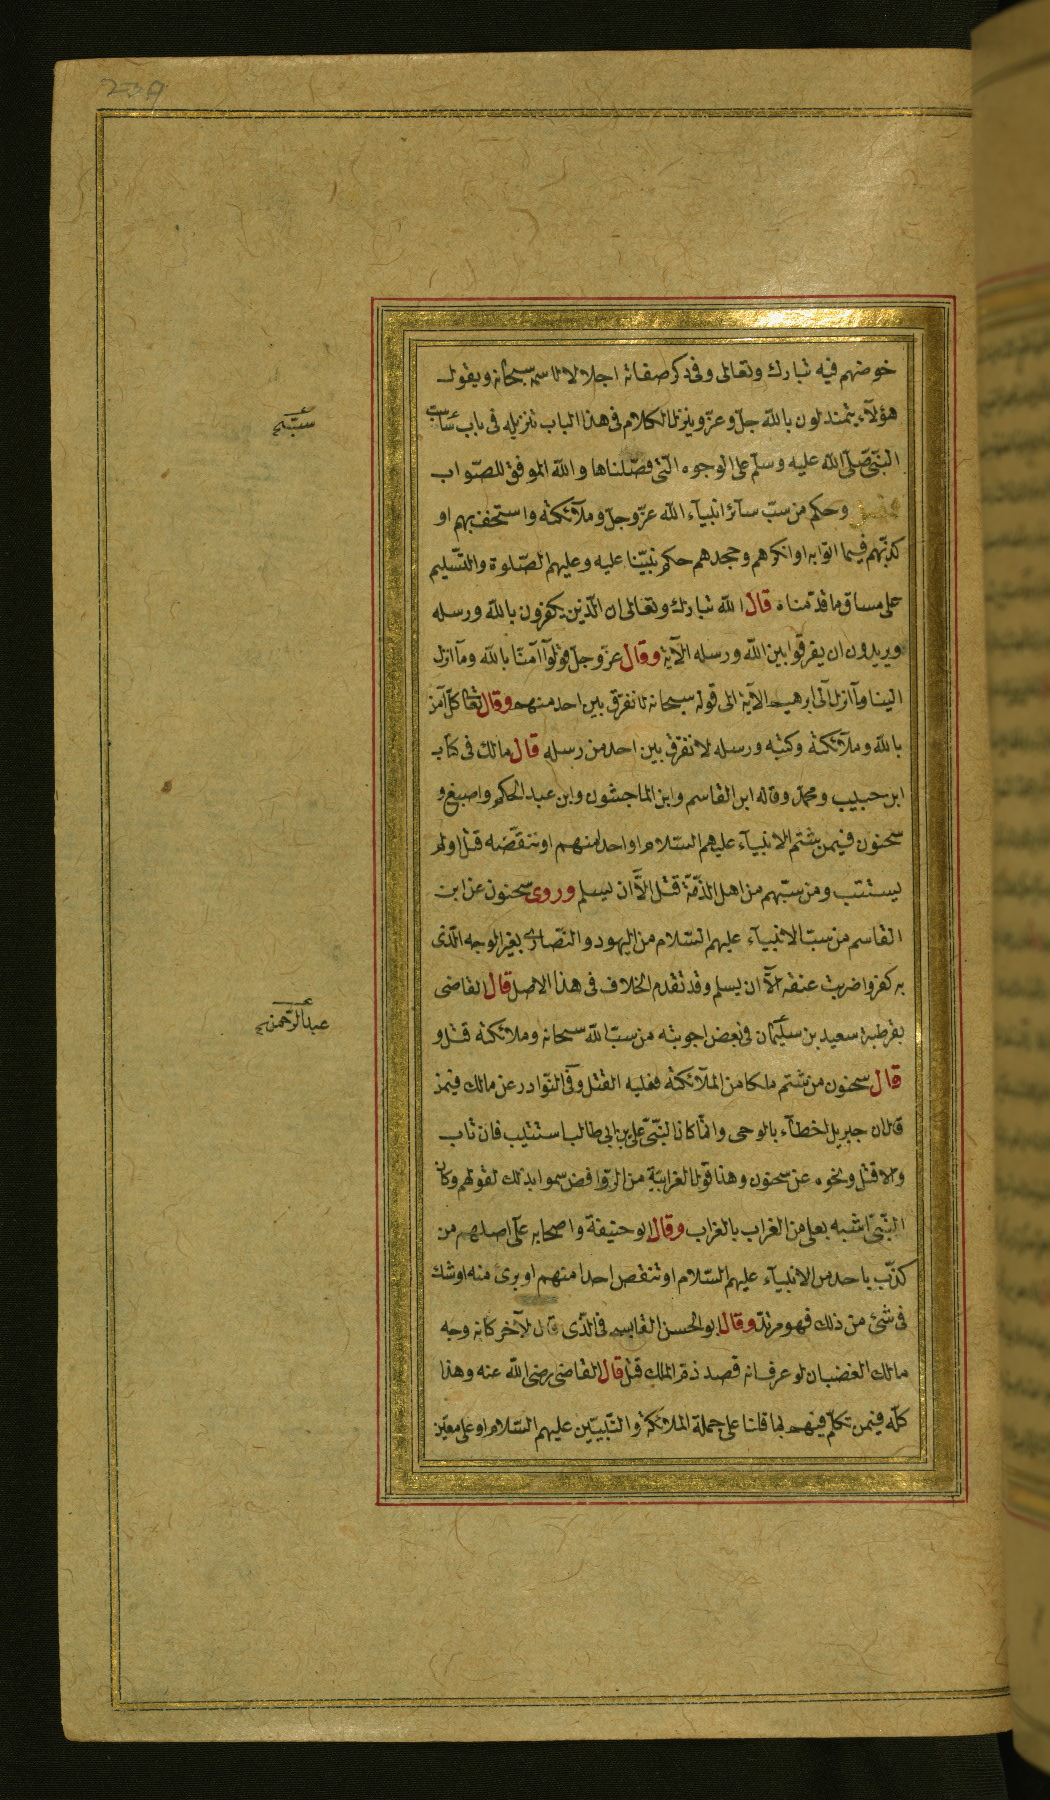 خوضهم فيه تبارك وتعالى وفى ذكر صفاته اجلالا لاسمه سبحانه ويقول
هؤلآء يتمندلون بالله جل وعز وينزل الكلام فى هذا الباب تنزيله فى باب سابّ
النبّى صلّى الله عليه وسلّم على الوجوه الّتى فصّلناها والله الموفق للصّواب
فصل وحكم من سبّ سآئر انبيآء الله عزّ وجلّ وملآئكته واستخف بهم او
كذّبهم فيما اتوا به او انكرهم وجحدهم حكم نبيّنا عليه وعليهم الصّلوة والتّسليم
على مساق ما قدّمناه قال الله تبارك وتعالى ان الّذين يكفرون بالله ورسله
ويريدون ان يفرقوا بين الله ورسله الآية وقال عزّ وجلّ قولوآ آمنّا بالله ومآ انزل
الينا ومآ انزل الى ابرهيم الآية الى قوله سبحانه لا نفرّق بين احد منهم وقال تعالى كلّ آمن
بالله وملآئكته وكتبه ورسله لا نفرّق بين احد من رسله قال مالك فى كتاب
ابن حبيب ومحمّد وقاله ابن القاسم وابن الماجشون وابن عبد الحكم واصبغ و
سحنون فيمن شتم الانبيآء عليهم السّلام او احدا منهم او تنقّصه قتل ولم
يستتب ومن سبّهم من اهل الذّمّة قتل الّآ ان يسلم وروى سحنون عن ابن
القاسم من سبّ الانبيآء عليهم السّلام من اليهود والنّصارى بغير الوجه الّذى
به كفروا ضربت عنقه الّآ ان يسلم وقد تقدم الخلاف فى هذا الاصل قال القاضى
بقرطبة سعيد بن سليمان فى بعض اجوبته من سبّ الله سبحانه وملائكته قتل و
قال سحنون من شتم ملكا من الملآئكة فعليه القتل وفى النّوادر عن مالك فيمن
قال ان جبريل اخطآء بالوحى وانّما كان النّبىّ علىّ بن ابى طالب استتيب فان تاب
والا قتل ونحوه عن سحنون وهذا قول الغرابيّة من الرّوافض سموا بذلك لقولهم وكان
النّبىّ اشبه بعلى من الغراب بالغراب وقال ابو حنيفة واصحابه على اصلهم من
كذّب باحد من الانبيآء عليهم السّلام او تنقص احدا منهم او برئ منه او شك
فى شئ من ذلك فهو مرتدّ وقال ابو الحسن القابسى فى الّذى قال لآخر كانه وجه
مالك الغضبان لو عرف انه قصد ذمّ الملك قتل قال القاضى رضى الله عنه وهذا
كلّه فيمن تكلّم فيهم بما قلنا على جملة الملائكة والنّبيّين عليهم السّلام او على معيّن
سبّه
عبد الرّحمن